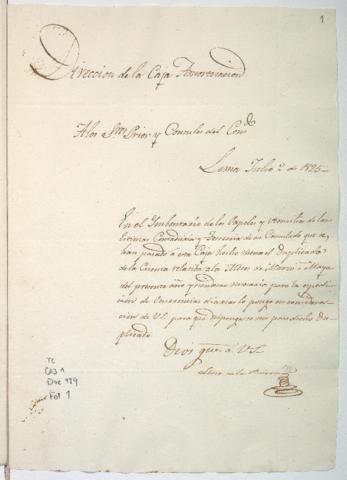 1
Direccion de la Caja Amortizacion
A los S.res Prior y Consules del Con.do
Lima Julio 2 de 1825
En el Imbentario de los Papeles y utencilios de las
Contaduria y Tesoreria de ese Consulado que se
han pasado a esta Caja hecho menos el Duplicado
de la Cuenta relativa a los Meses de Marzo á Mayo
del presente año y siendome necesario para la
de ocurrencias diarias lo pongo en considerac-
cion de VS. para que disponga se me pase dicho Du-
plicado
Dios gue. á VS.
TC
CAJ 1
Doc 129
Fol 1